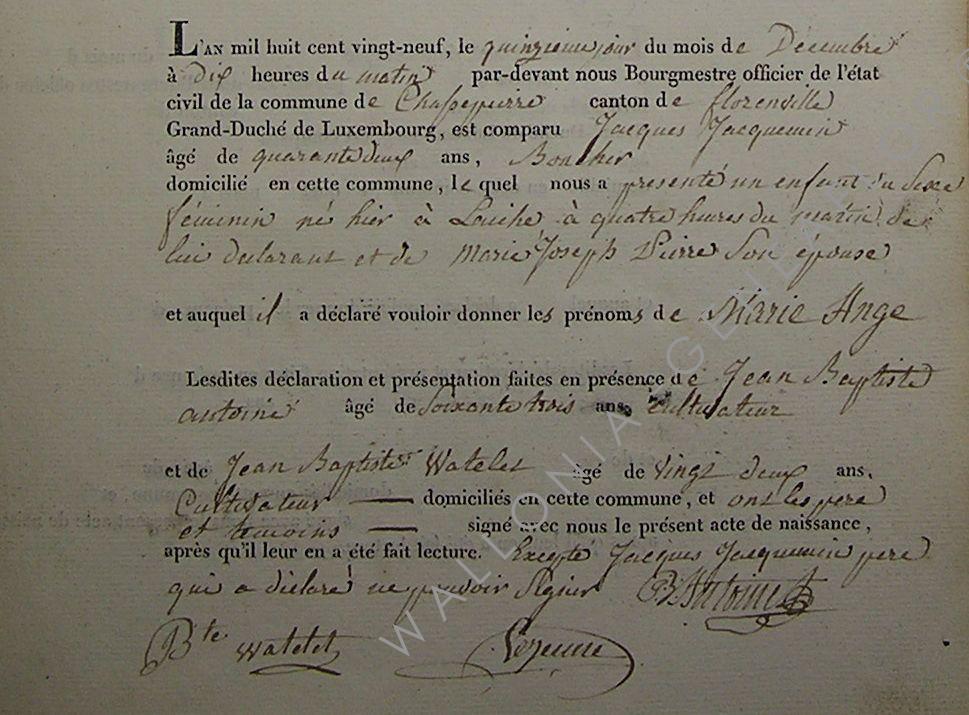 L'AN mil huit cent vingt-neuf, le quinzieme jour du mois de Décembre
à dix heures du matin par-devant nous Bourgmestre officier de l'état
civil de la commune de Chassepierre canton de florenville
Grand-Duché de Luxembourg, est comparu Jacques Jacquemin
âgé de quarante deux ans,
domicilié en cette commune, le quel nous a presenté un enfant du Sexe
féminin né hier à Laiche à quatre heures du matin de
lui declarant et de Marie Joseph Pierre Son épouse
et auquel il a déclaré vouloir donner les prénoms de Marie Ange
Lesdites déclaration et présentation faites en présence de Jean Baptiste
antoine âgé de Soixante trois ans, cultivateur
et de Jean Baptiste Watelet âgé de vingt deux ans,
Cultivateur — domiciliés en cette commune, et ont les pere
et temoins — signé avec nous le présent acte de naissance,
après qu'il leur en a été fait lecture. Excepté Jacques Jacquemin pere
qui a déclaré ne pouvoir Signer B Antoine
Bte Watelet Lozenne
WALLONIA GENEALOGY